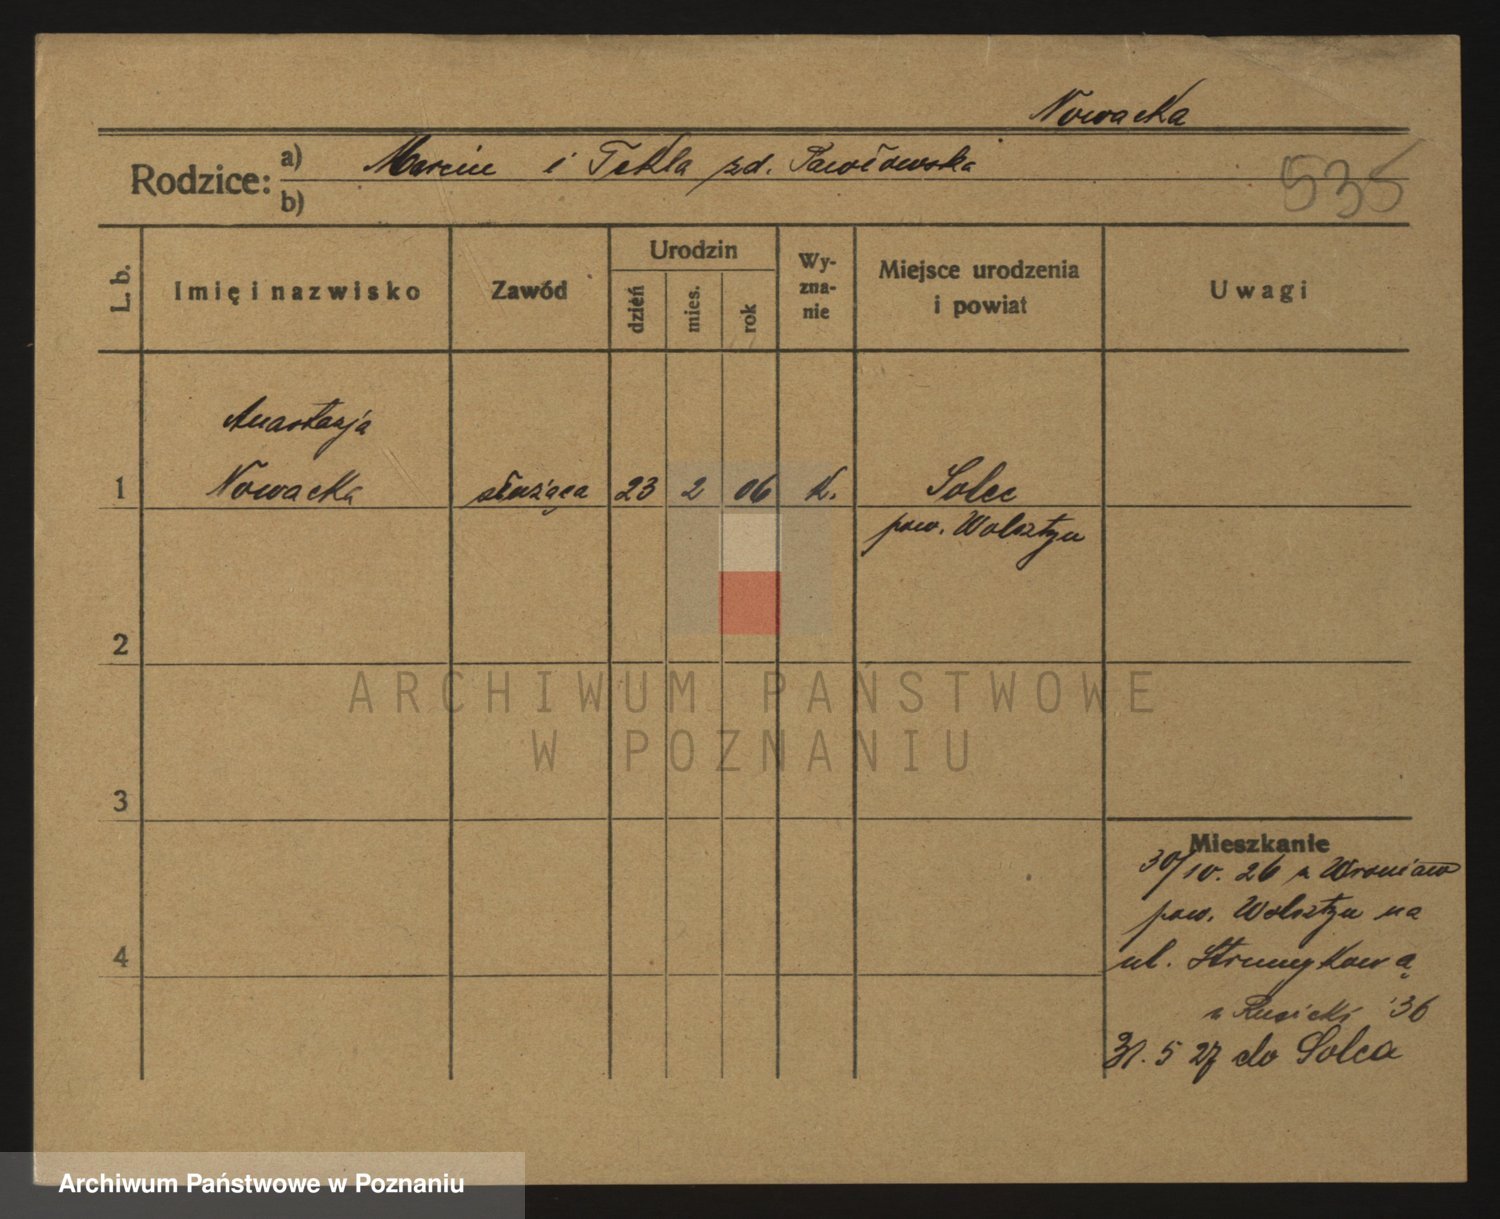 Nowacka
Rodzice: a) Marcin i Tekla zd. Pawłowska
b)
535
L. b.
Imię i nazwisko
Zawód
Urodzin
dzień
mies.
rok
Wy-
zna-
nie
Miejsce urodzenia
i powiat
Uwagi
Anastazja
1 Nowacka służąca 23 2 06 k. Solec
pow. Wolsztyn
2
ARCHIWUM PAŃSTWOWE
W POZNANIU
3
Mieszkanie
30/10. 26 z Wroniaw
pow. Wolsztyn na
4
ul. Strumykową
36
31. 5 27 do Solca
Archiwum Państwowe w Poznaniu